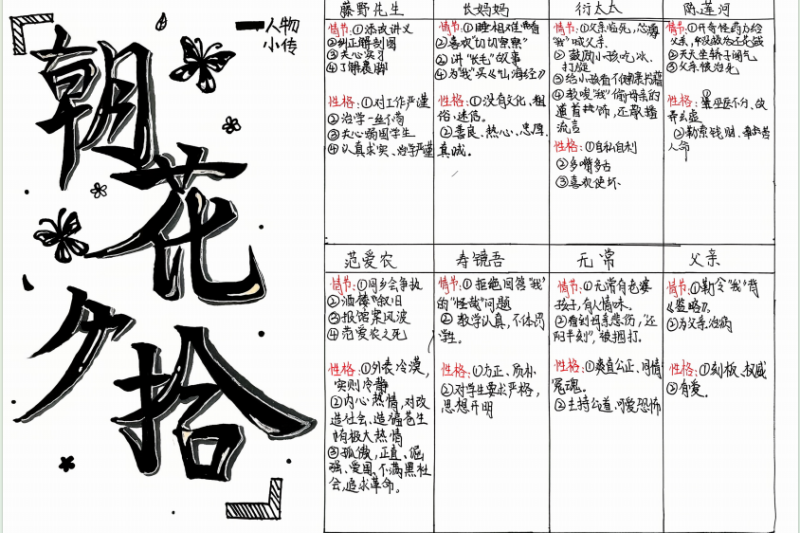 朝花夕拾
人物
小传
藤野先生
情节:①添改讲义
②纠正解剖图
③关心实习
④了解裹脚
性格:①对工作严谨
②治学一丝不苟
③关心弱国学生
④认真求实、治学严谨
长妈妈
情节:①睡相难看
②喜欢"切切察察"
③讲"长毛"故事
④为"我"买《山海经》
性格:①没有文化、粗
俗、迷信。
②善良、热心、忠厚、
真诚。
衍太太
情节:①父亲临死,怂恿
"我"喊父亲。
②鼓励小孩吃冰、
打旋
③给小孩看不健康书籍
④教唆"我"偷母亲的
还散播
流言
性格:①自私自利
②多嘴多舌
③喜欢使坏
陈莲河
情节:①开奇怪药方给
父亲,
②天天坐轿子阔气
③父亲被治死
性格:①
巫医不分、故
弄玄虚
②勒索钱财、
人命
范爱农
情节:①同乡会争执
②酒楼叙旧
③报馆案风波
④范爱农之死
性格:①外表冷漠,
实则冷静
②内心热情,对改
造社会、造福苍生
有极大热情
③孤傲,正直、倔
强、爱国、不满黑社
会,追求革命。
寿镜吾
情节:①拒绝回答"我"
的"怪哉"问题
②教学认真,不体罚
学生。
性格:①方正、质朴
②对学生要求严格,
思想开明
无常
情节:①无常有老婆
孩子,有人情味。
②看到母亲悲伤,"还
阳半刻",被捆打。
性格:①爽直公正、同情
冤魂。
②主持公道、可爱恐怖
父亲
情节:①勒令"我"背
《鉴略》。
②为父亲治病
性格:①刻板、权威
②有爱。